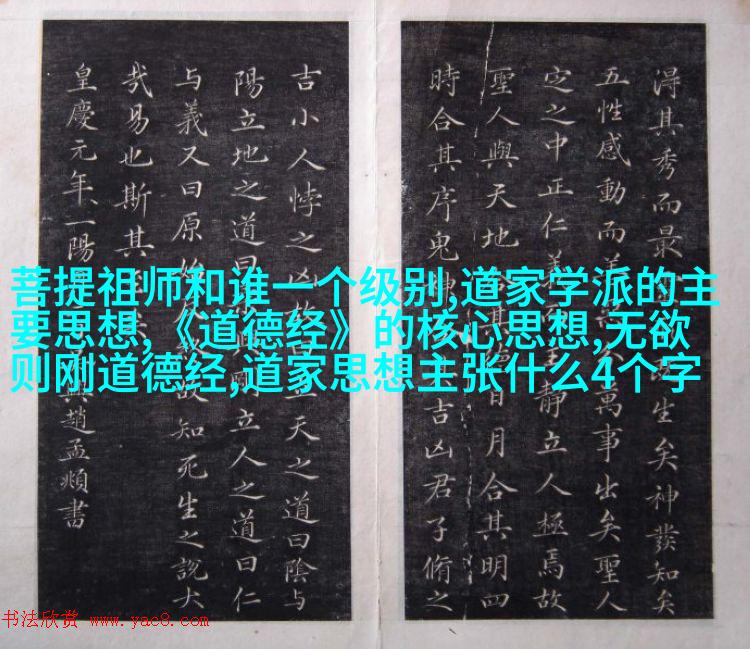 淂其秀而最生矣神發知矣
五性感動而萬事出矣聖人
定之中正仁義主靜立人極焉故
聖人與天地其日月合其明四
時合其序鬼神吉凶君子脩之
吉小人悖之凶故天之道曰陰与
陽立地之道曰立人之道曰仁
与義又曰原始故知死生之說大
哉易也斯其
皇慶元年一陽趙孟頫書
菩提祖师和谁一个级别,道家学派的主
要思想,《道德经》的核心思想,无欲
则刚道德经,道家思想主张什么4个字
书法欣赏 www.yac8.com